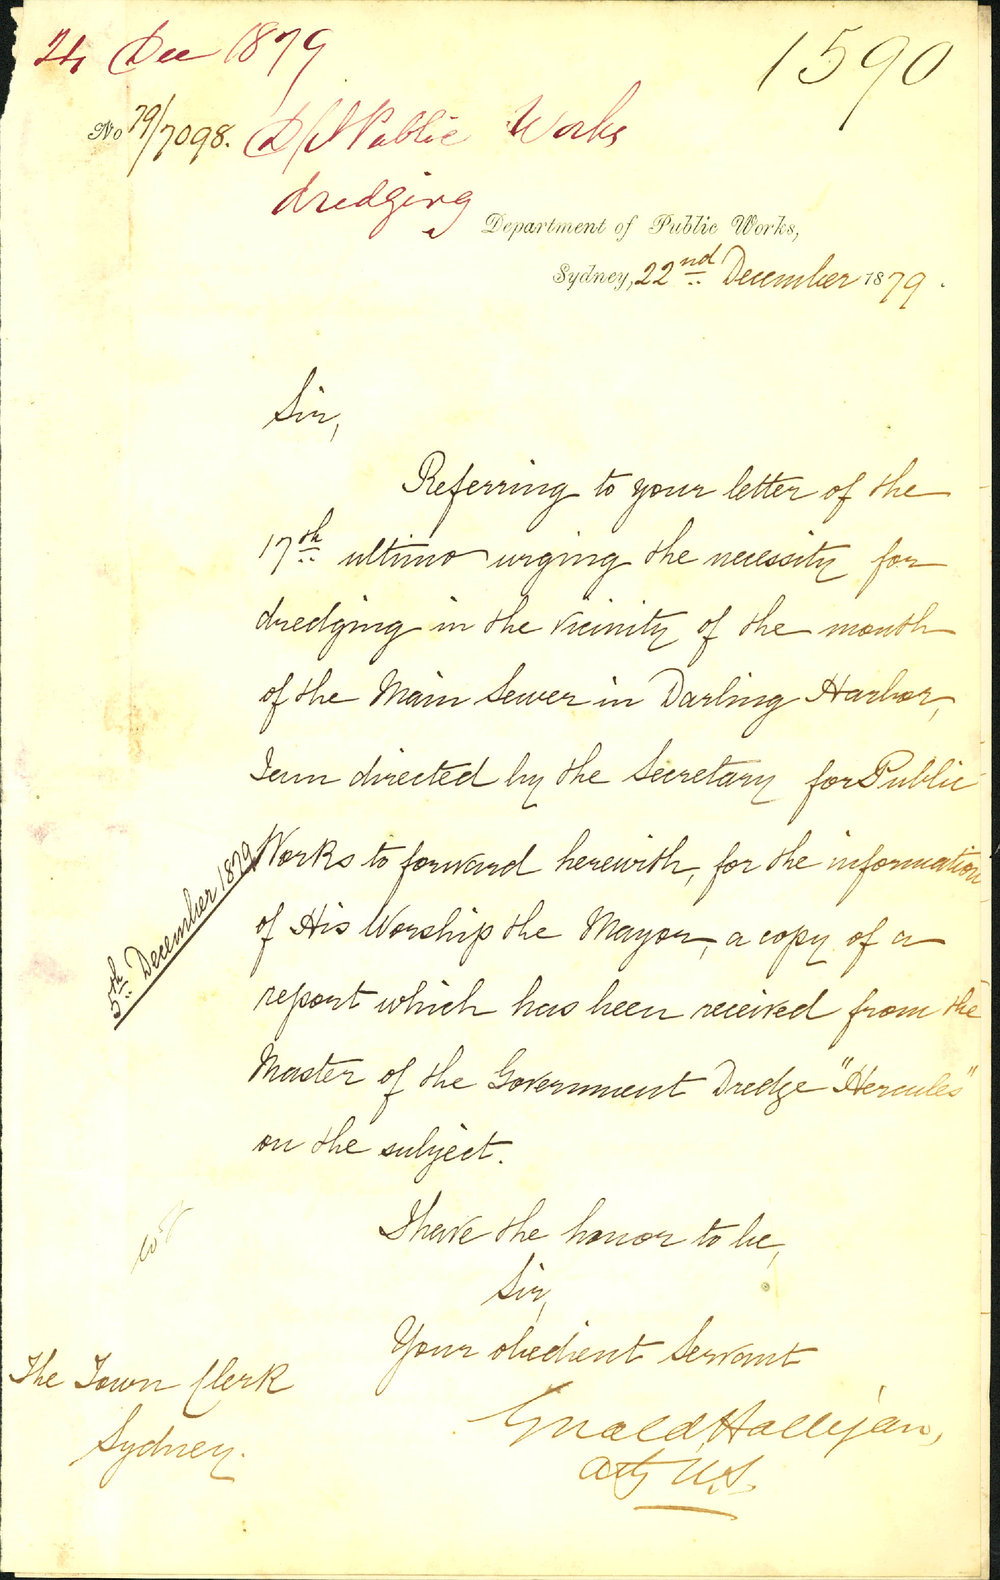 24 Dec 1879
1590
No 79/7098.
Public Works
dredging
Department of Public Works,
Sydney, 22nd December 1879.
Sir,
Referring to your letter of the
17th ultimo urging the necessity for
dredging in the vicinity of the mouth
of the Main Sewer in Darling Harbor,
I am directed by the Secretary for Public
Works to forward herewith, for the information
of His Worship the Mayor, a copy of a
report which has been received from the
Master of the Government Dredge "Hercules"
on the subject.
5th December 1879
I have the honor to be,
Sir,
Your obedient Servant
Gerald Halligan,
Actg U.S.
The Town Clerk
Sydney.